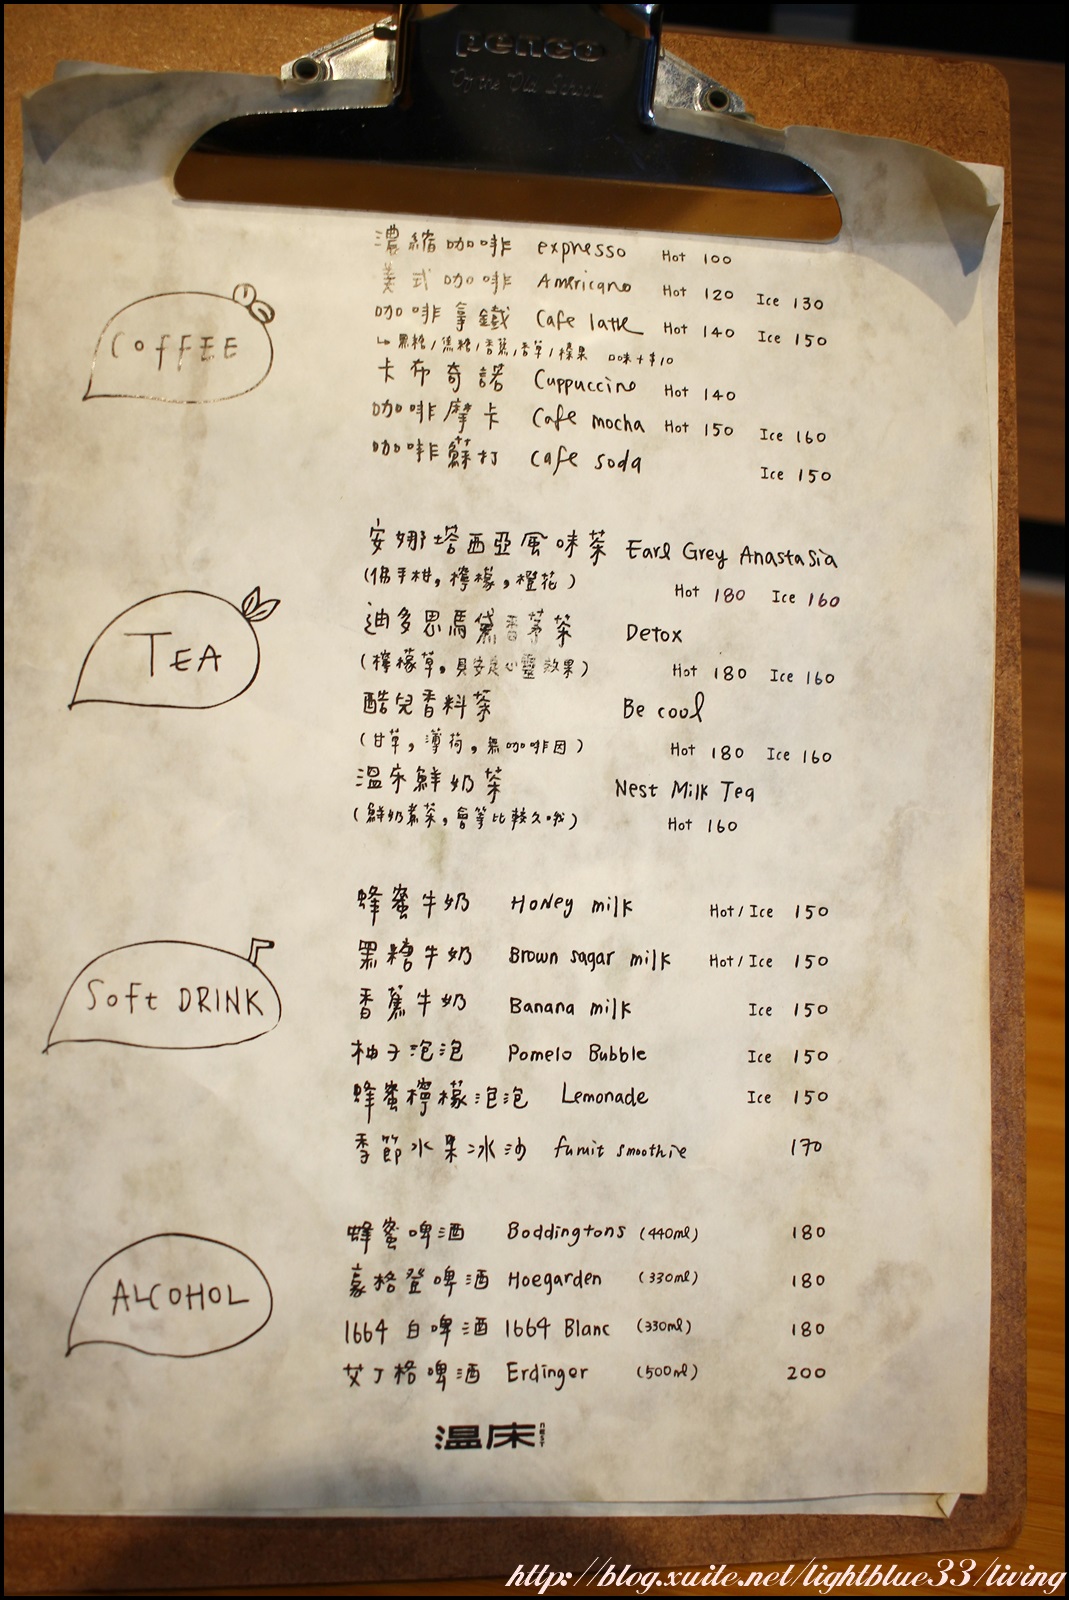 penco
Of the Old School
COFFEE
濃縮咖啡 expresso Hot 100
美式咖啡 Americano Hot 120 Ice 130
咖啡拿鐵 Cafe latte Hot 140 Ice 150
↳ 黑糖/焦糖/香蕉/香草/榛果 口味+$10
卡布奇諾 Cuppuccino Hot 140
咖啡摩卡 Cafe mocha Hot 150 Ice 160
咖啡蘇打 cafe soda Ice 150
TEA
安娜塔西亞風味茶 Earl Grey Anastasia
(佛手柑,檸檬,橙花) Hot 180 Ice 160
迪多思馬黛香茅茶 Detox
(檸檬草,具安定心靈效果) Hot 180 Ice 160
酷兒香料茶 Be cool
(甘草,薄荷,無咖啡因) Hot 180 Ice 160
溫床鮮奶茶 Nest Milk Tea
(鮮奶煮茶,會等比較久哦) Hot 160
Soft DRINK
蜂蜜牛奶 Honey milk Hot/Ice 150
黑糖牛奶 Brown sagar milk Hot/Ice 150
香蕉牛奶 Banana milk Ice 150
柚子泡泡 Pomelo Bubble Ice 150
蜂蜜檸檬泡泡 Lemonade Ice 150
季節水果冰沙 smoothie 170
ALCOHOL
蜂蜜啤酒 Boddingtons (440ml) 180
豪格登啤酒 Hoegarden (330ml) 180
1664 白啤酒 1664 Blanc (330ml) 180
艾丁格啤酒 Erdinger (500ml) 200
溫床 nEST
http://blog.xuite.net/lightblue33/living